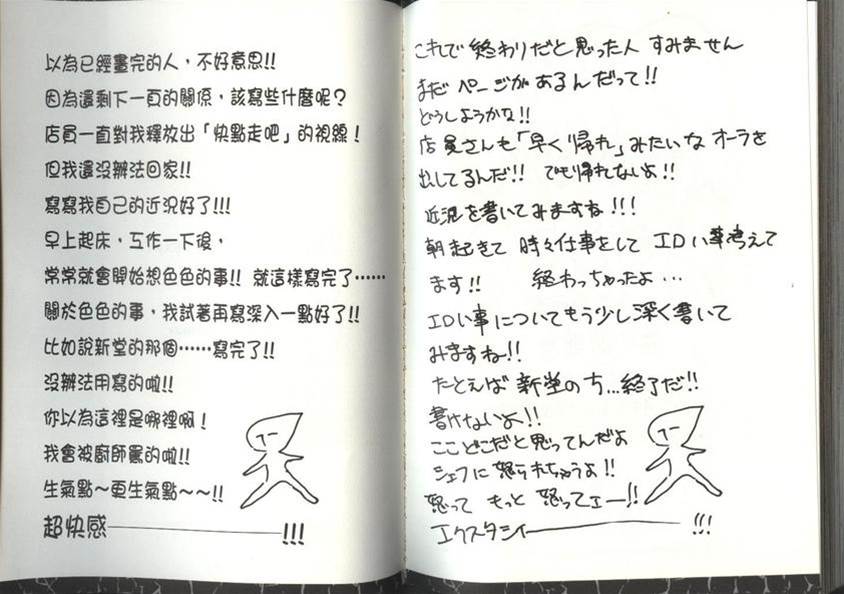 以為已經畫完的人，不好意思!!
因為還剩下一頁的關係，該寫些什麼呢？
店員一直對我釋放出「快點走吧」的視線！
但我還沒辦法回家!!
寫寫我自己的近況好了!!!
早上起床，工作一下後，
常常就會開始想色色的事!! 就這樣寫完了……
關於色色的事，我試著再寫深入一點好了!!
比如說新堂的那個……寫完了!!
沒辦法用寫的啦!!
你以為這裡是哪裡啊！
我會被廚師罵的啦!!
生氣點～更生氣點～～!!
超快感――――!!!
これで終わりだと思った人 すみません
まだページがあるんだって!!
どうしようかな!!
店員さんも「早く帰れ」みたいなオーラを
出してるんだ!! でも帰れないよ!!
近況を書いてみますね!!!
朝起きて 時々仕事をして エロい事考えて
ます!! 終わっちゃったよ…
エロい事についてもう少し深く書いて
みますね!!
たとえば 新堂のち…終了だ!!
書けないよ!!
ここどこだと思ってんだよ
シェフに怒られちゃうよ!!
怒って もっと 怒ってェー!!
エクスタシィ――――!!!